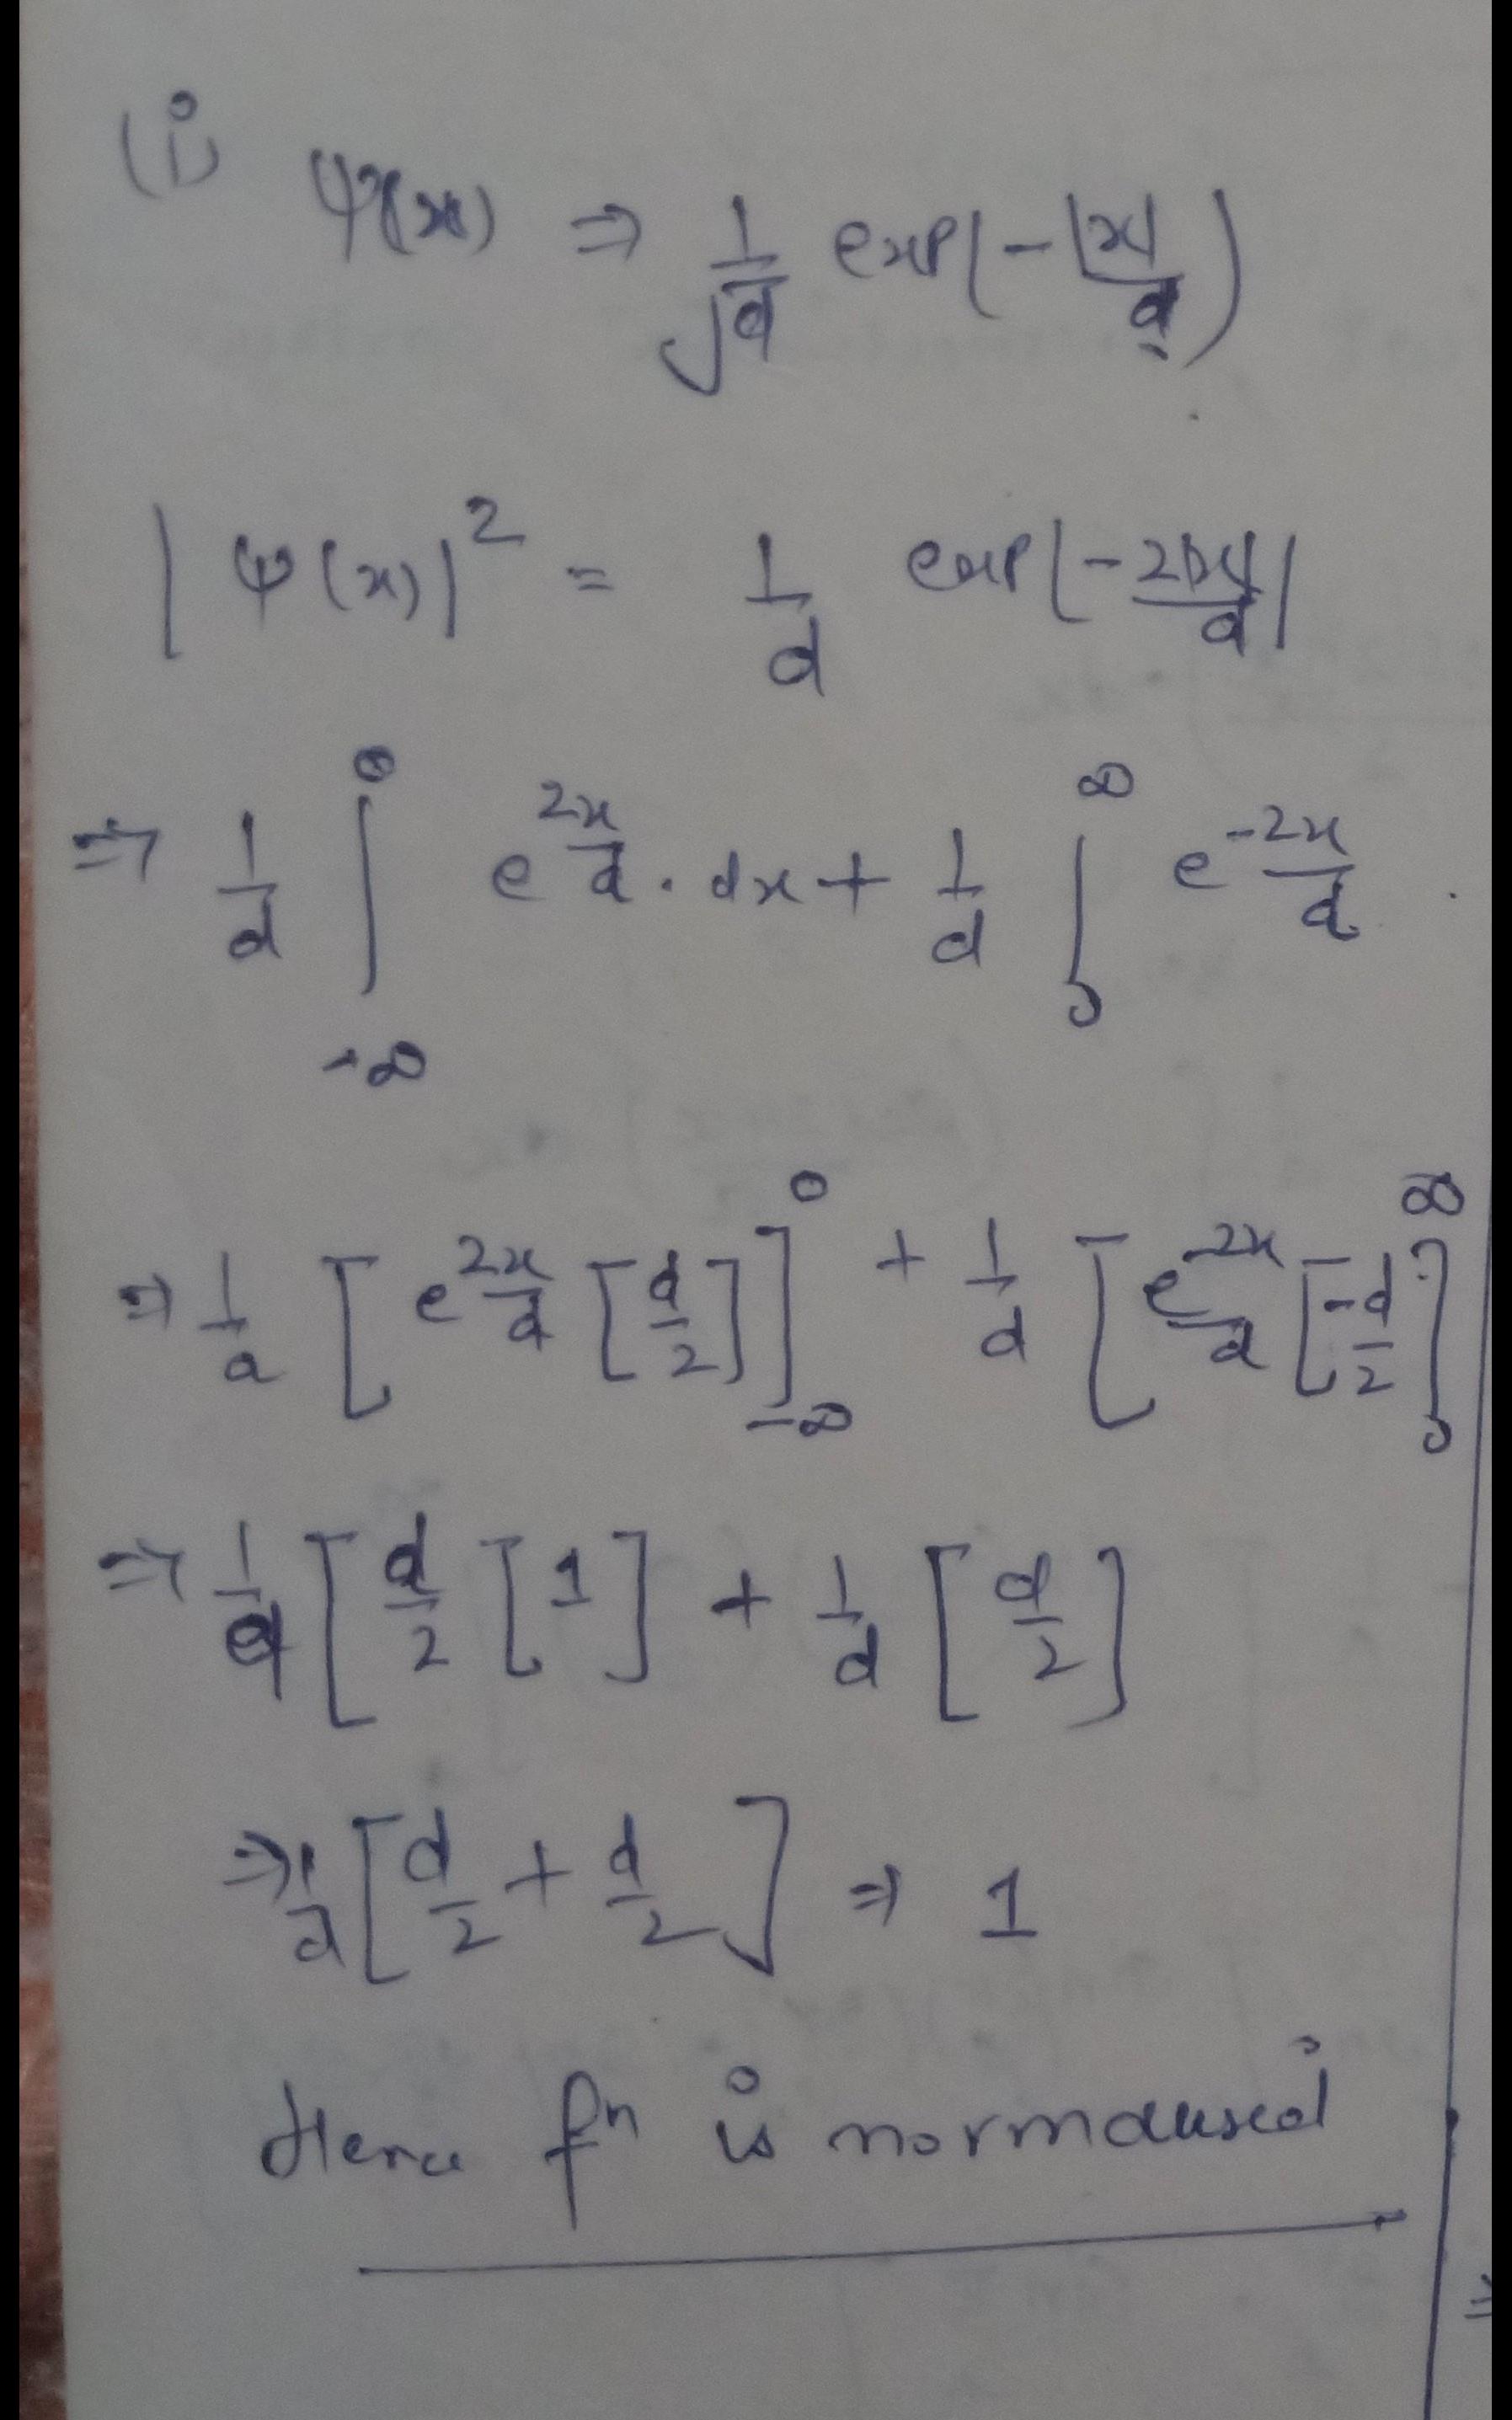 (i) ψ(x) ⇒ 1/√d exp(-|x|/d)
|ψ(x)|² = 1/d exp(-2|x|/d)
⇒ 1/d ∫_{-∞}^{0} e^{2x/d} . dx + 1/d ∫_{0}^{∞} e^{-2x/d} .
⇒ 1/d [ e^{2x/d} [d/2] ]_{-∞}^{0} + 1/d [ e^{-2x/d} [-d/2 ]_{0}^{∞}
⇒ 1/d [ d/2 [1] + 1/d [ d/2 ]
⇒ 1/d [ d/2 + d/2 ] ⇒ 1
Hence fⁿ is normalised
=